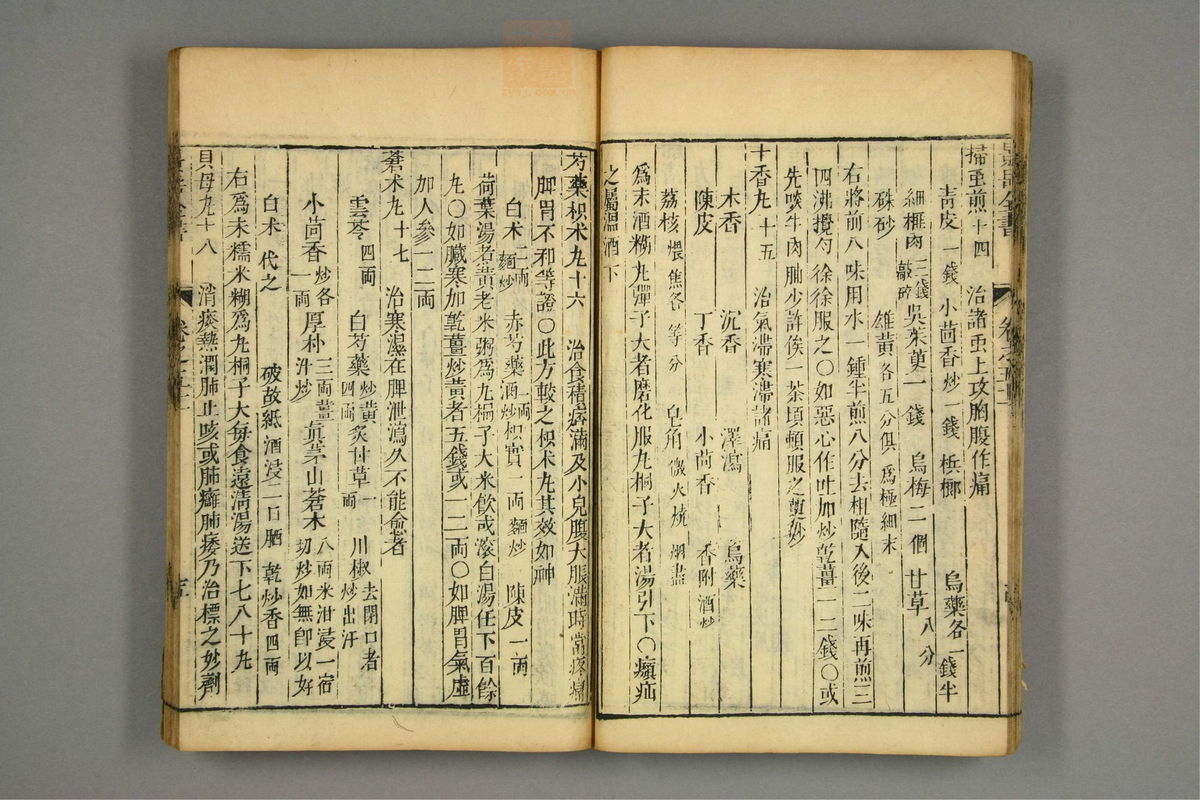 掃蟲煎十四 治諸蟲上攻胸腹作痛
青皮一錢 小茴香炒一錢 梹榔 烏藥各一錢半
細榧肉三錢敲碎 吳茱萸一錢 烏梅二個 甘草八分
硃砂 雄黃各五分俱為極細末
右將前八味用水一鍾半煎八分去柤隨入後二味再煎三
四沸攪勻徐徐服之○如惡心作吐加炒乾薑一二錢○或
先啖牛肉脯少許俟一茶頃頓服之更妙
十香丸十五 治氣滯寒滯諸痛
木香 沉香 澤瀉 烏藥
陳皮 丁香 小茴香 香附酒炒
荔核煨焦各等分 皂角微火燒烟盡
為末酒糊丸彈子大者磨化服丸桐子大者湯引下○㿗疝
之屬溫酒下
芍藥枳术丸十六 治食積痞滿及小兒腹大脹滿時常疼痛
脾胃不和等證○此方較之枳术丸其效如神
白术二兩麵炒 赤芍藥二兩酒炒 枳實一兩麵炒 陳皮一兩
荷葉湯煮黃老米粥為丸桐子大米飲或滾白湯任下百餘
丸○如臟寒加乾薑炒黃者五錢或一二兩○如脾胃氣虛
加人參一二兩
蒼术丸十七 治寒濕在脾泄瀉久不能愈者
雲苓四兩 白芍藥炒黃四兩 炙甘草一兩 川椒去閉口者炒出汗
小茴香炒各一兩 厚朴三兩薑汁炒 真茅山蒼木八兩米泔浸一宿切炒如無即以好
白术代之 破故紙酒浸二日晒乾炒香四兩
右為末糯米糊為丸桐子大每食遠清湯送下七八十丸
貝母丸十八 消痰熱潤肺止咳或肺癰肺痿乃治標之妙劑